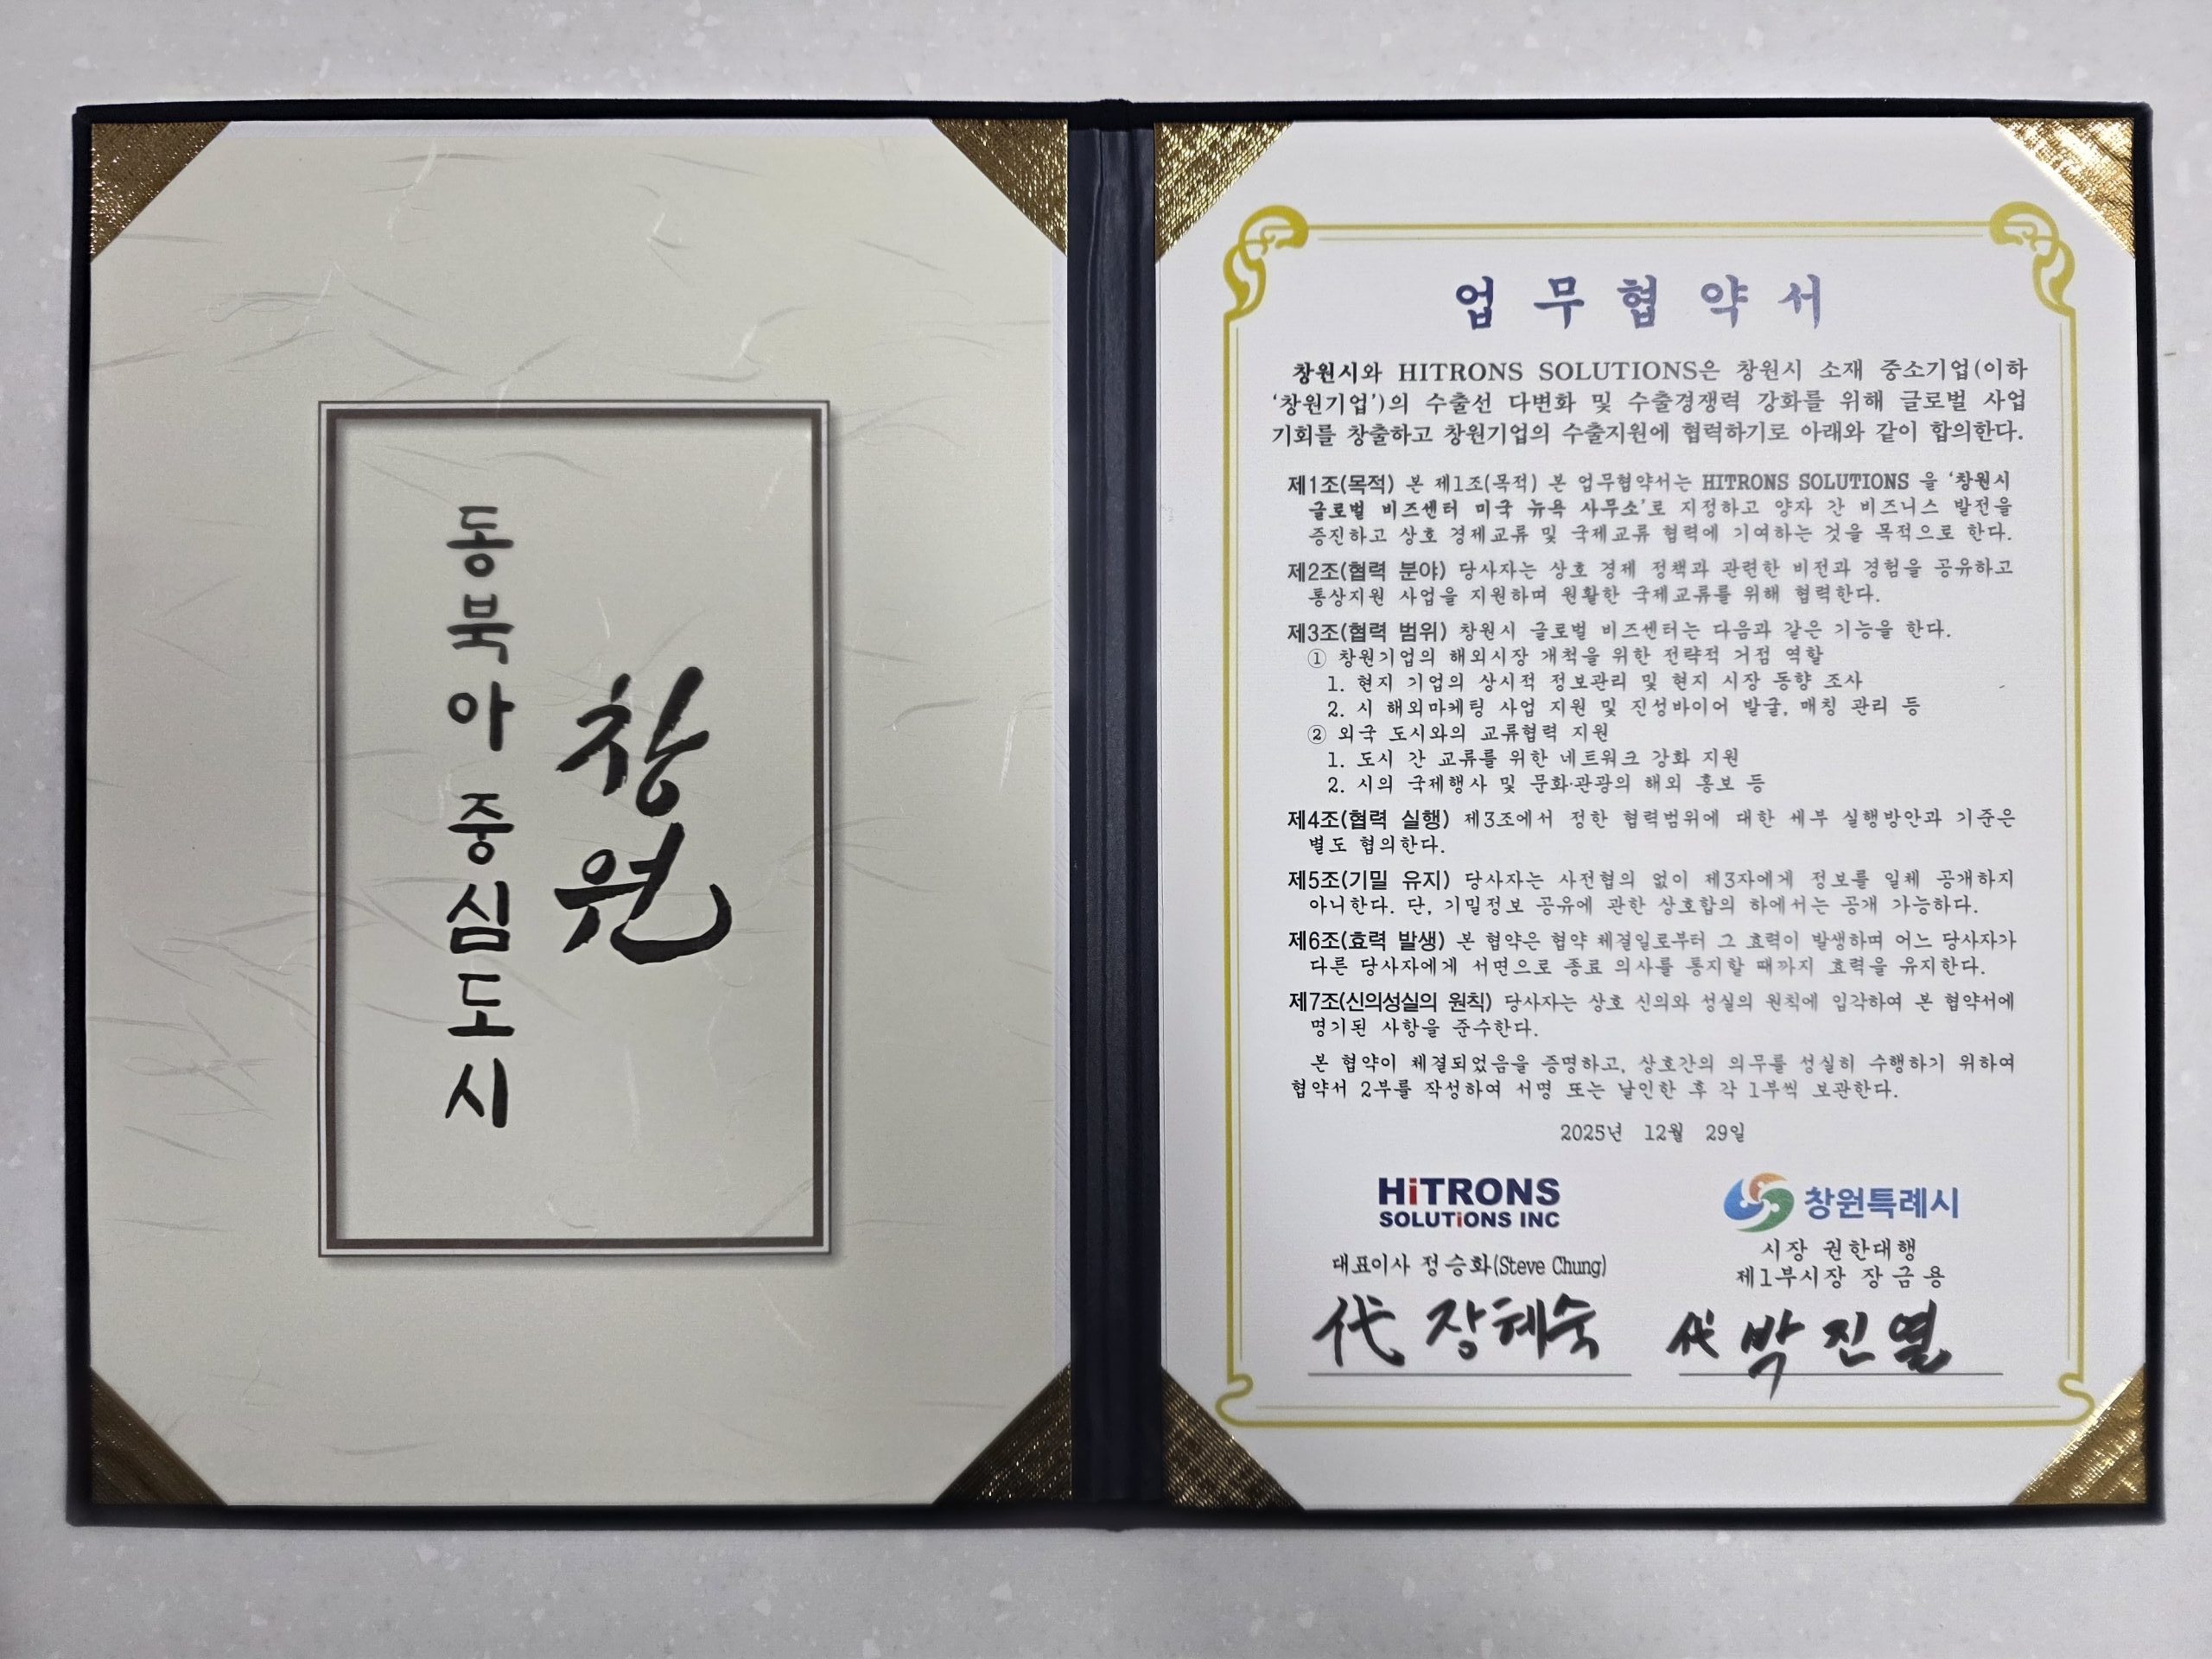 동북아 중심도시
창원
업무협약서
창원시와 HITRONS SOLUTIONS은 창원시 소재 중소기업(이하
‘창원기업’)의 수출선 다변화 및 수출경쟁력 강화를 위해 글로벌 사업
기회를 창출하고 창원기업의 수출지원에 협력하기로 아래와 같이 합의한다.
제1조(목적) 본 제1조(목적) 본 업무협약서는 HITRONS SOLUTIONS 을 ‘창원시
글로벌 비즈센터 미국 뉴욕 사무소’로 지정하고 양자 간 비즈니스 발전을
증진하고 상호 경제교류 및 국제교류 협력에 기여하는 것을 목적으로 한다.
제2조(협력 분야) 당사자는 상호 경제 정책과 관련한 비전과 경험을 공유하고
통상지원 사업을 지원하며 원활한 국제교류를 위해 협력한다.
제3조(협력 범위) 창원시 글로벌 비즈센터는 다음과 같은 기능을 한다.
① 창원기업의 해외시장 개척을 위한 전략적 거점 역할
1. 현지 기업의 상시적 정보관리 및 현지 시장 동향 조사
2. 시 해외마케팅 사업 지원 및 진성바이어 발굴, 매칭 관리 등
② 외국 도시와의 교류협력 지원
1. 도시 간 교류를 위한 네트워크 강화 지원
2. 시의 국제행사 및 문화·관광의 해외 홍보 등
제4조(협력 실행) 제3조에서 정한 협력범위에 대한 세부 실행방안과 기준은
별도 협의한다.
제5조(기밀 유지) 당사자는 사전협의 없이 제3자에게 정보를 일체 공개하지
아니한다. 단, 기밀정보 공유에 관한 상호합의 하에서는 공개 가능하다.
제6조(효력 발생) 본 협약은 협약 체결일로부터 그 효력이 발생하며 어느 당사자가
다른 당사자에게 서면으로 종료 의사를 통지할 때까지 효력을 유지한다.
제7조(신의성실의 원칙) 당사자는 상호 신의와 성실의 원칙에 입각하여 본 협약서에
명기된 사항을 준수한다.
본 협약이 체결되었음을 증명하고, 상호간의 의무를 성실히 수행하기 위하여
협약서 2부를 작성하여 서명 또는 날인한 후 각 1부씩 보관한다.
2025년 12월 29일
HiTRONS
SOLUTiONS INC
대표이사 정승화(Steve Chung)
代 장혜숙
창원특례시
시장 권한대행
제1부시장 장금용
代 박진열